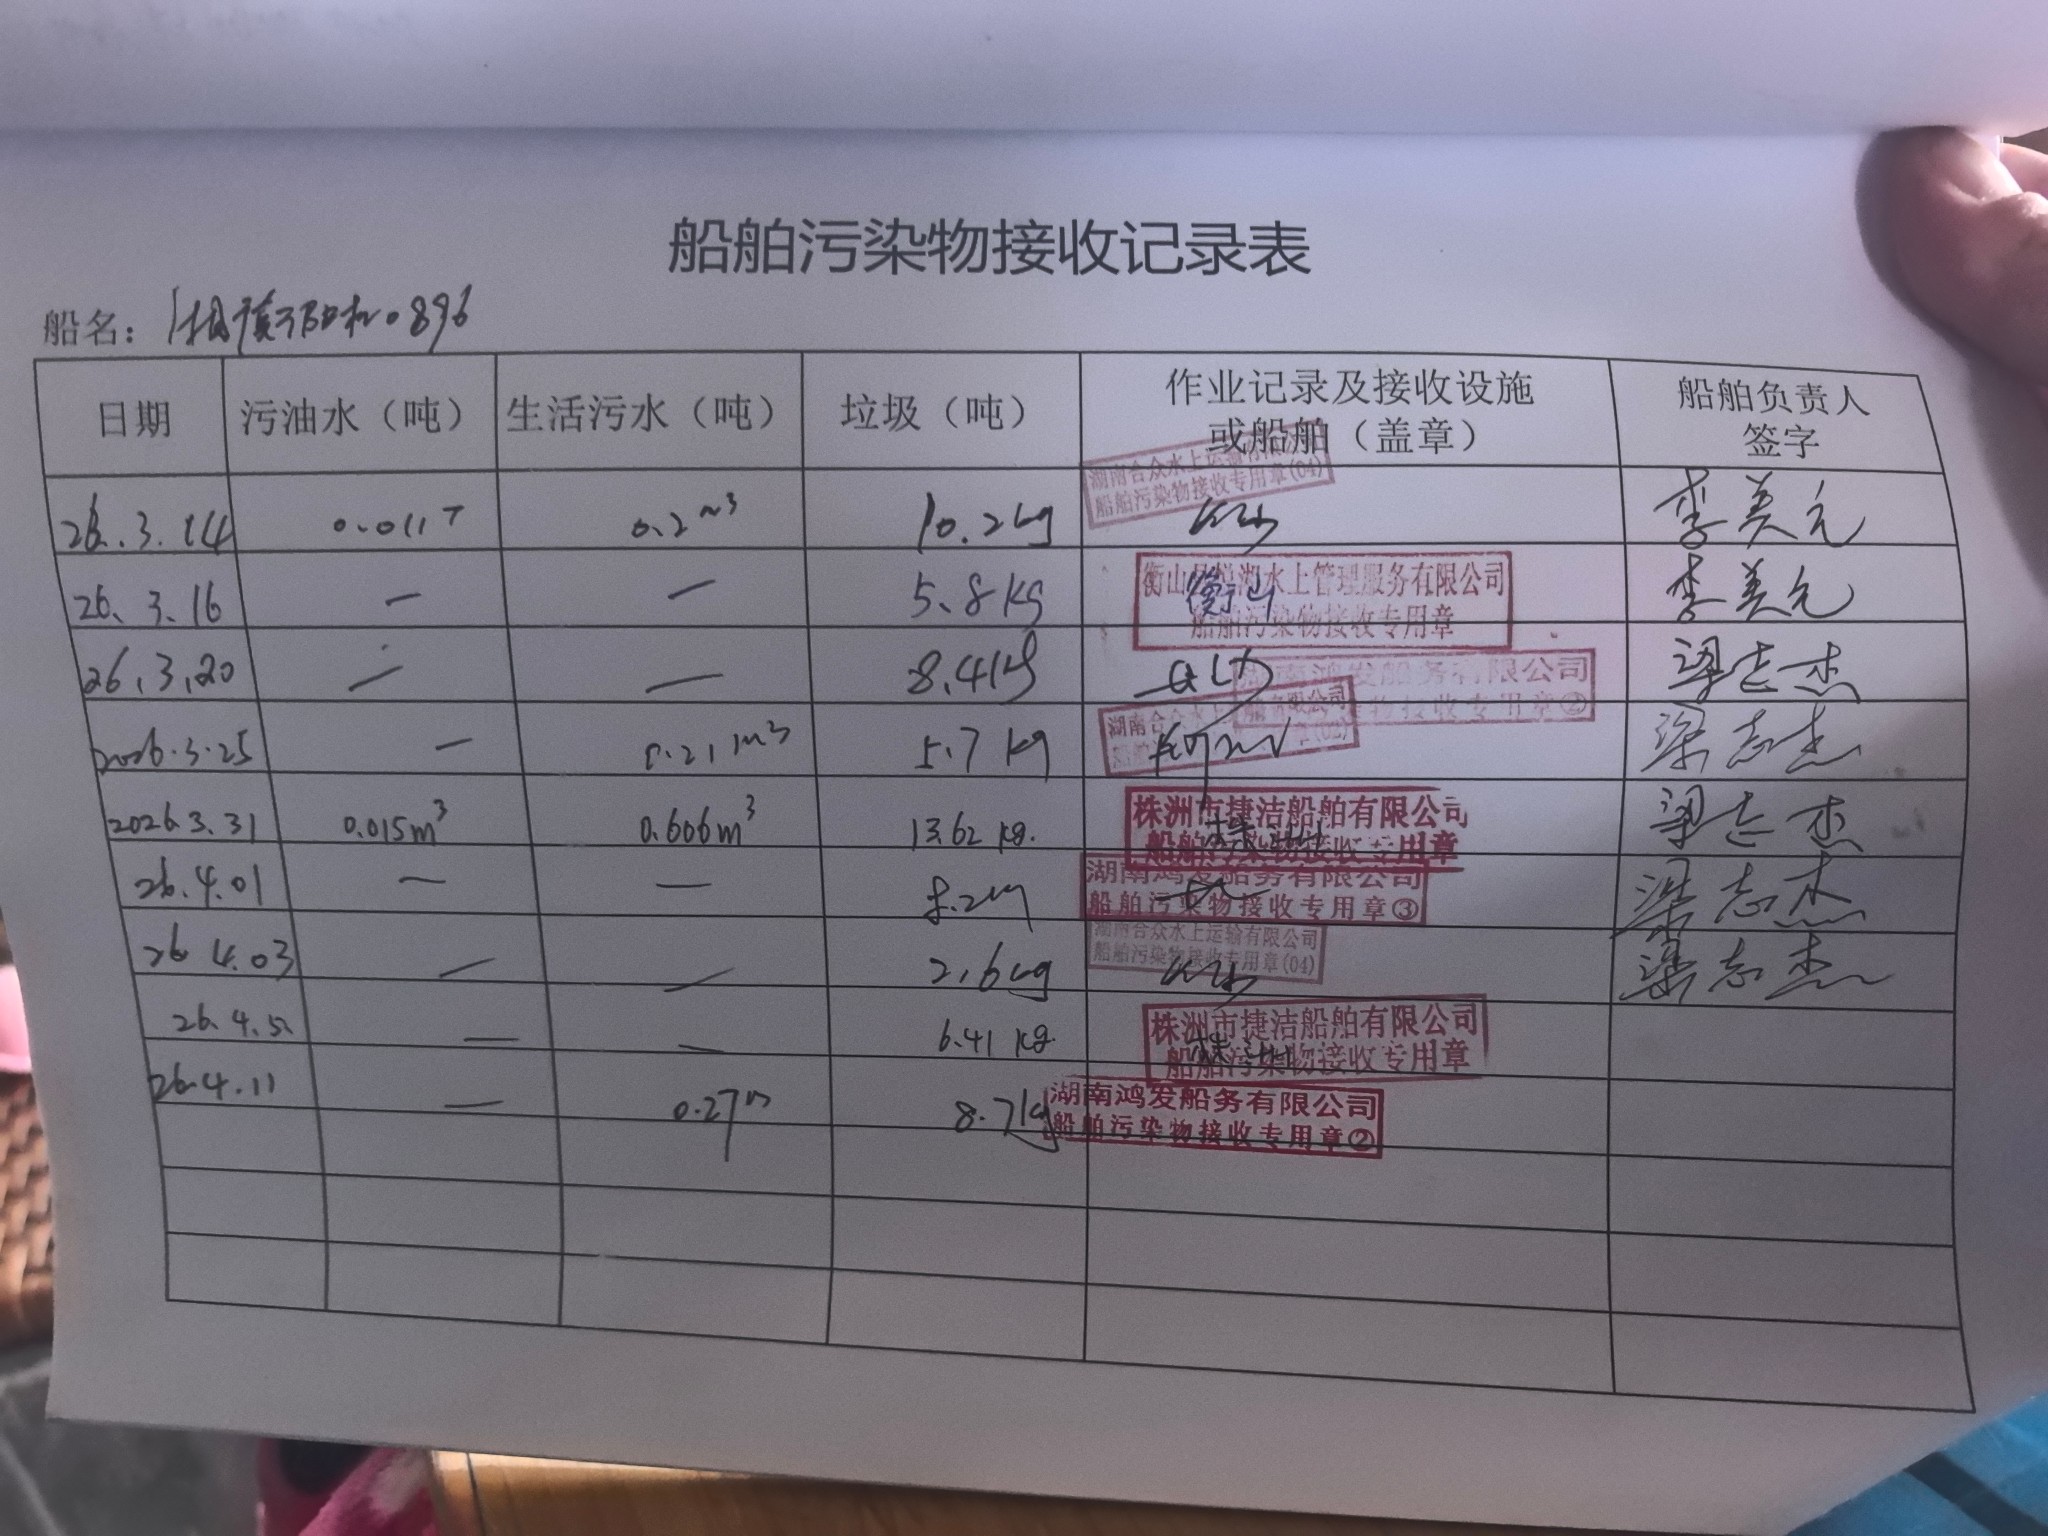 船舶污染物接收记录表
船名：湘 0896
日期 污油水（吨） 生活污水（吨） 垃圾（吨） 作业记录及接收设施或船舶（盖章） 船舶负责人签字
26.3.14 0.011T 0.2m³ 10.2kg 湖南合众水上运输有限公司 船舶污染物接收专用章(04) 李美元
26.3.16 — — 5.8kg 衡山县悦湖水上管理服务有限公司 船舶污染物接收专用章 衡山 李美元
26.3.20 — — 8.4kg 湖南鸿发船务有限公司 船舶污染物接收专用章② 梁志杰
2026.3.25 — 0.21m³ 5.7kg 湖南合众水上运输有限公司 船舶污染物接收专用章(02) 梁志杰
2026.3.31 0.015m³ 0.606m³ 13.62kg. 株洲市捷洁船舶有限公司 船舶污染物接收专用章 株洲 梁志杰
26.4.01 — — 8.2kg 湖南鸿发船务有限公司 船舶污染物接收专用章③ 梁志杰
26.4.03 — — 2.6kg 湖南合众水上运输有限公司 船舶污染物接收专用章(04) 梁志杰
26.4.5. — — 6.41kg 株洲市捷洁船舶有限公司 船舶污染物接收专用章 株洲
26.4.11 — 0.27m 8.7kg 湖南鸿发船务有限公司 船舶污染物接收专用章②